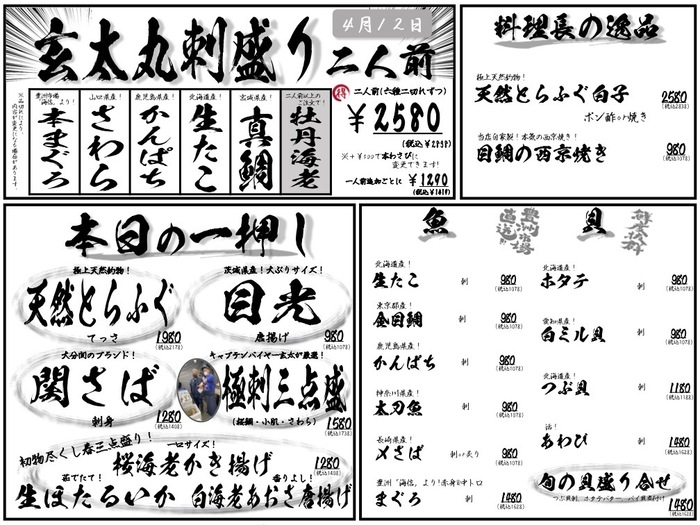 玄太丸刺盛り二人前
4月12日
豊洲市場「海信」より!
本まぐろ
山口県産!
さわら
鹿児島県産!
かんぱち
北海道産!
生たこ
宮城県産!
真鯛
二人前以上のご注文で!
牡丹海老
得
二人前(六種二切れずつ)
¥2580
(税込¥2838)
※+¥100で本わさびに
変更できます!
一人前追加ごとに ¥1290
(税込¥1419)
料理長の逸品
極上天然釣物!
天然とらふぐ白子 2580
(税込2838)
ポン酢or焼き
当店自家製!本気の西京焼き!
目鯛の西京焼き 980
(税込1078)
本日の一押し
極上天然釣物!
天然とらふぐ
てっさ 1980
(税込2178)
茨城県産!大ぶりサイズ!
目光
唐揚げ 980
(税込1078)
大分関のブランド!
関さば
刺身 1280
(税込1408)
キャプテンバイヤー玄太が厳選!
極刺三点盛
(桜鯛・小肌・さわら) 1580
(税込1738)
初物尽くし春三点盛り!
一口サイズ!
桜海老かき揚げ 1280
(税込1408)
茹でたて!
生ほたるいか
香りよし!
白海老あおさ唐揚げ
魚
豊洲市場直送!!
北海道産!
生たこ 刺 980
(税込1078)
東京都産!
金目鯛 刺 980
(税込1078)
鹿児島県産!
かんぱち 刺 980
(税込1078)
神奈川県産!
太刀魚 刺 980
(税込1078)
長崎県産!
〆さば 刺or炙り 980
(税込1078)
豊洲「海信」より!赤身or中トロ
まぐろ 刺 1480
(税込1628)
貝
鮮度抜群
北海道産!
ホタテ 刺 980
(税込1078)
愛知県産!
白ミル貝 刺 980
(税込1078)
北海道産!
つぶ貝 刺 1180
(税込1298)
活!
あわび 刺 1480
(税込1628)
旬の貝盛り合せ
つぶ貝刺、ホタテバター、バイ貝煮付け 1480
(税込1628)